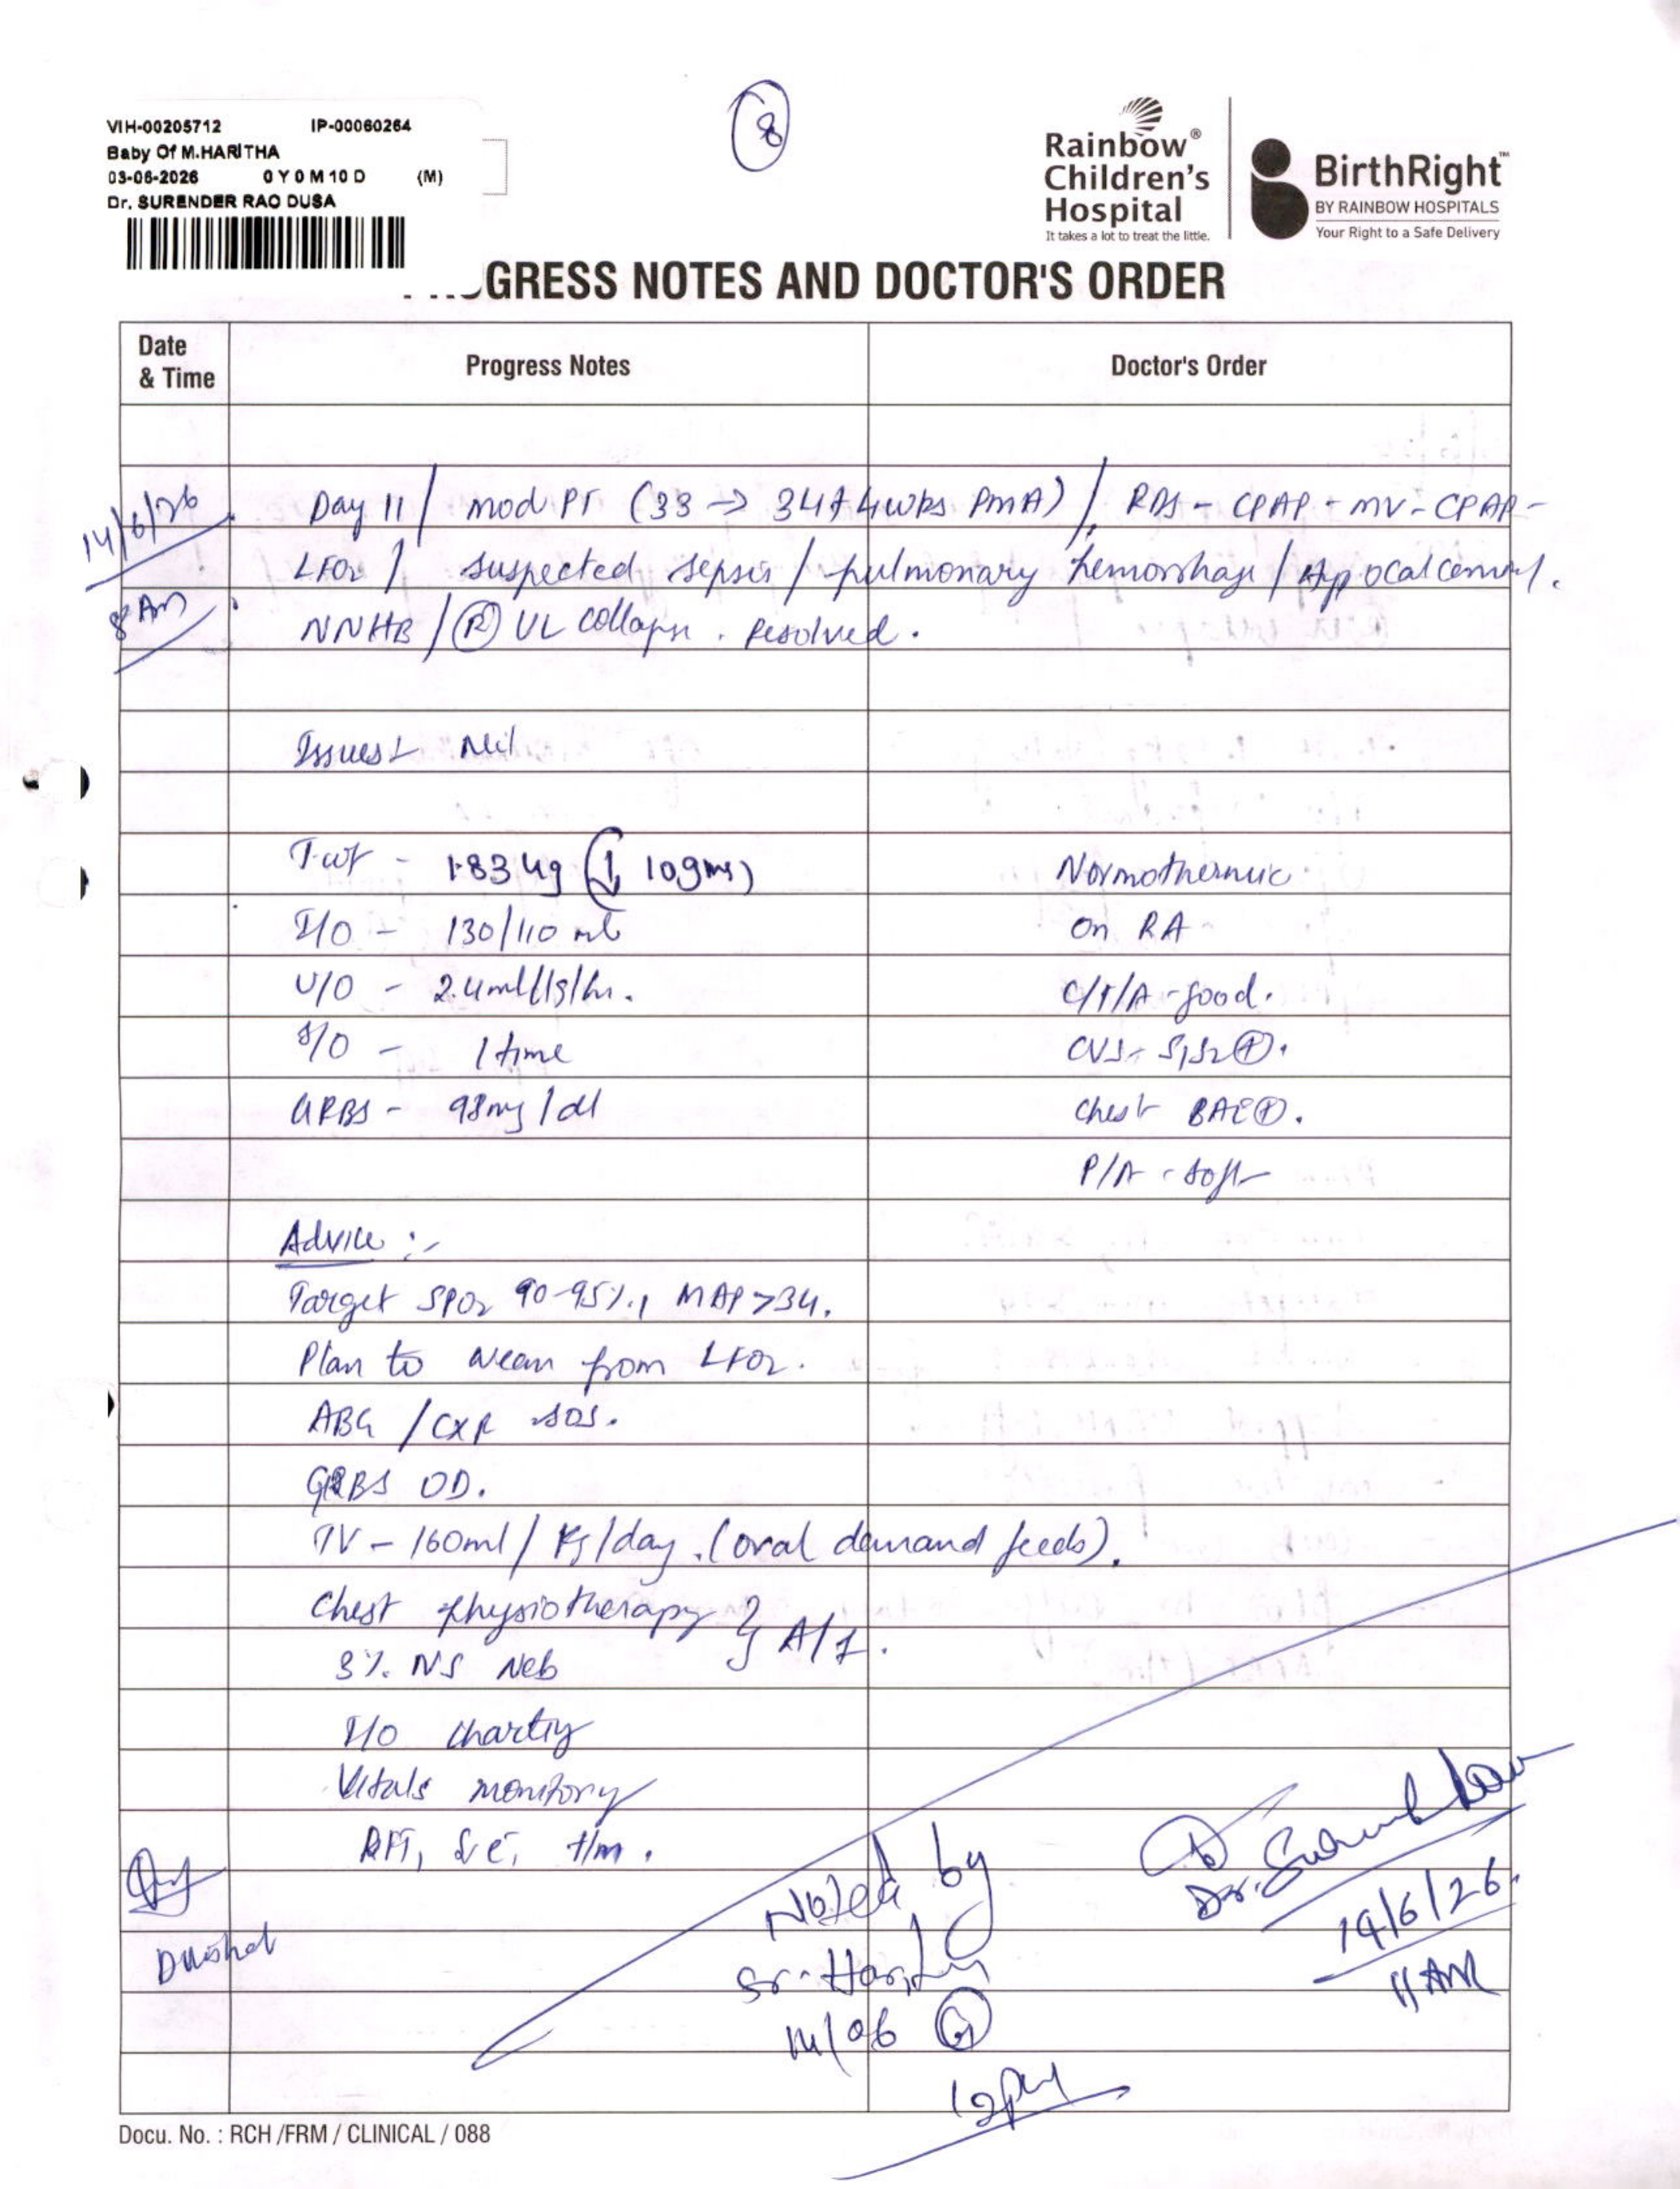 VIH-00205712 IP-00060264
Baby Of M.HARITHA
03-06-2026 0 Y 0 M 10 D (M)
Dr. SURENDER RAO DUSA
8
Rainbow®
Children's
Hospital
It takes a lot to treat the little.
BirthRight™
BY RAINBOW HOSPITALS
Your Right to a Safe Delivery
GRESS NOTES AND DOCTOR'S ORDER
Date & Time Progress Notes Doctor's Order
14/6/26 Day 11 / mod PT (33 -> 34+4wks PMA) / RDS - CPAP - MV - CPAP -
LFO2 / suspected sepsis / pulmonary hemorrhage / Hypocalcemia.
8 AM NNHB / (R) UL collapse . resolved.
Issues Nil
T.wt - 1.83 kg (↓ 10gms) Normothermic
I/O - 130/110 ml on RA
U/O - 2.4ml/kg/hr. C/T/A - good.
S/O - 1 time CVS - S1S2 (+).
GRBS - 98mg/dl Chest BAE (+).
P/A - soft
Advice :-
Target SPO2 90-95%, MAP >34.
Plan to wean from LFO2.
ABG / CXR SOS.
GRBS OD.
TV - 160ml / kg/day. (oral demand feeds).
Chest physiotherapy } A/1.
3% NS Neb
I/O charting
Vitals monitoring
RFT, t/m.
Noted by
Sr. 
14/06
12pm
Dr.
14/6/26
11 AM
Docu. No. : RCH /FRM / CLINICAL / 088